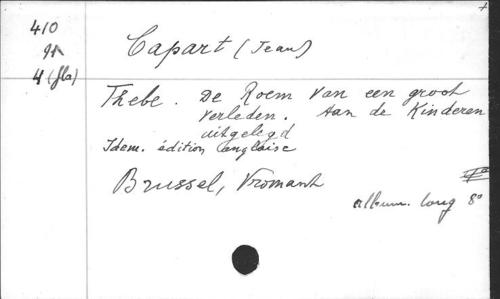 410
4 (fla)
Capart (Jean)
Thebe. De Roem van een groot
verleden. Aan de Kinderen
uitgelegd
Idem. édition anglaise
Brussel, Vromant
album. long 8°